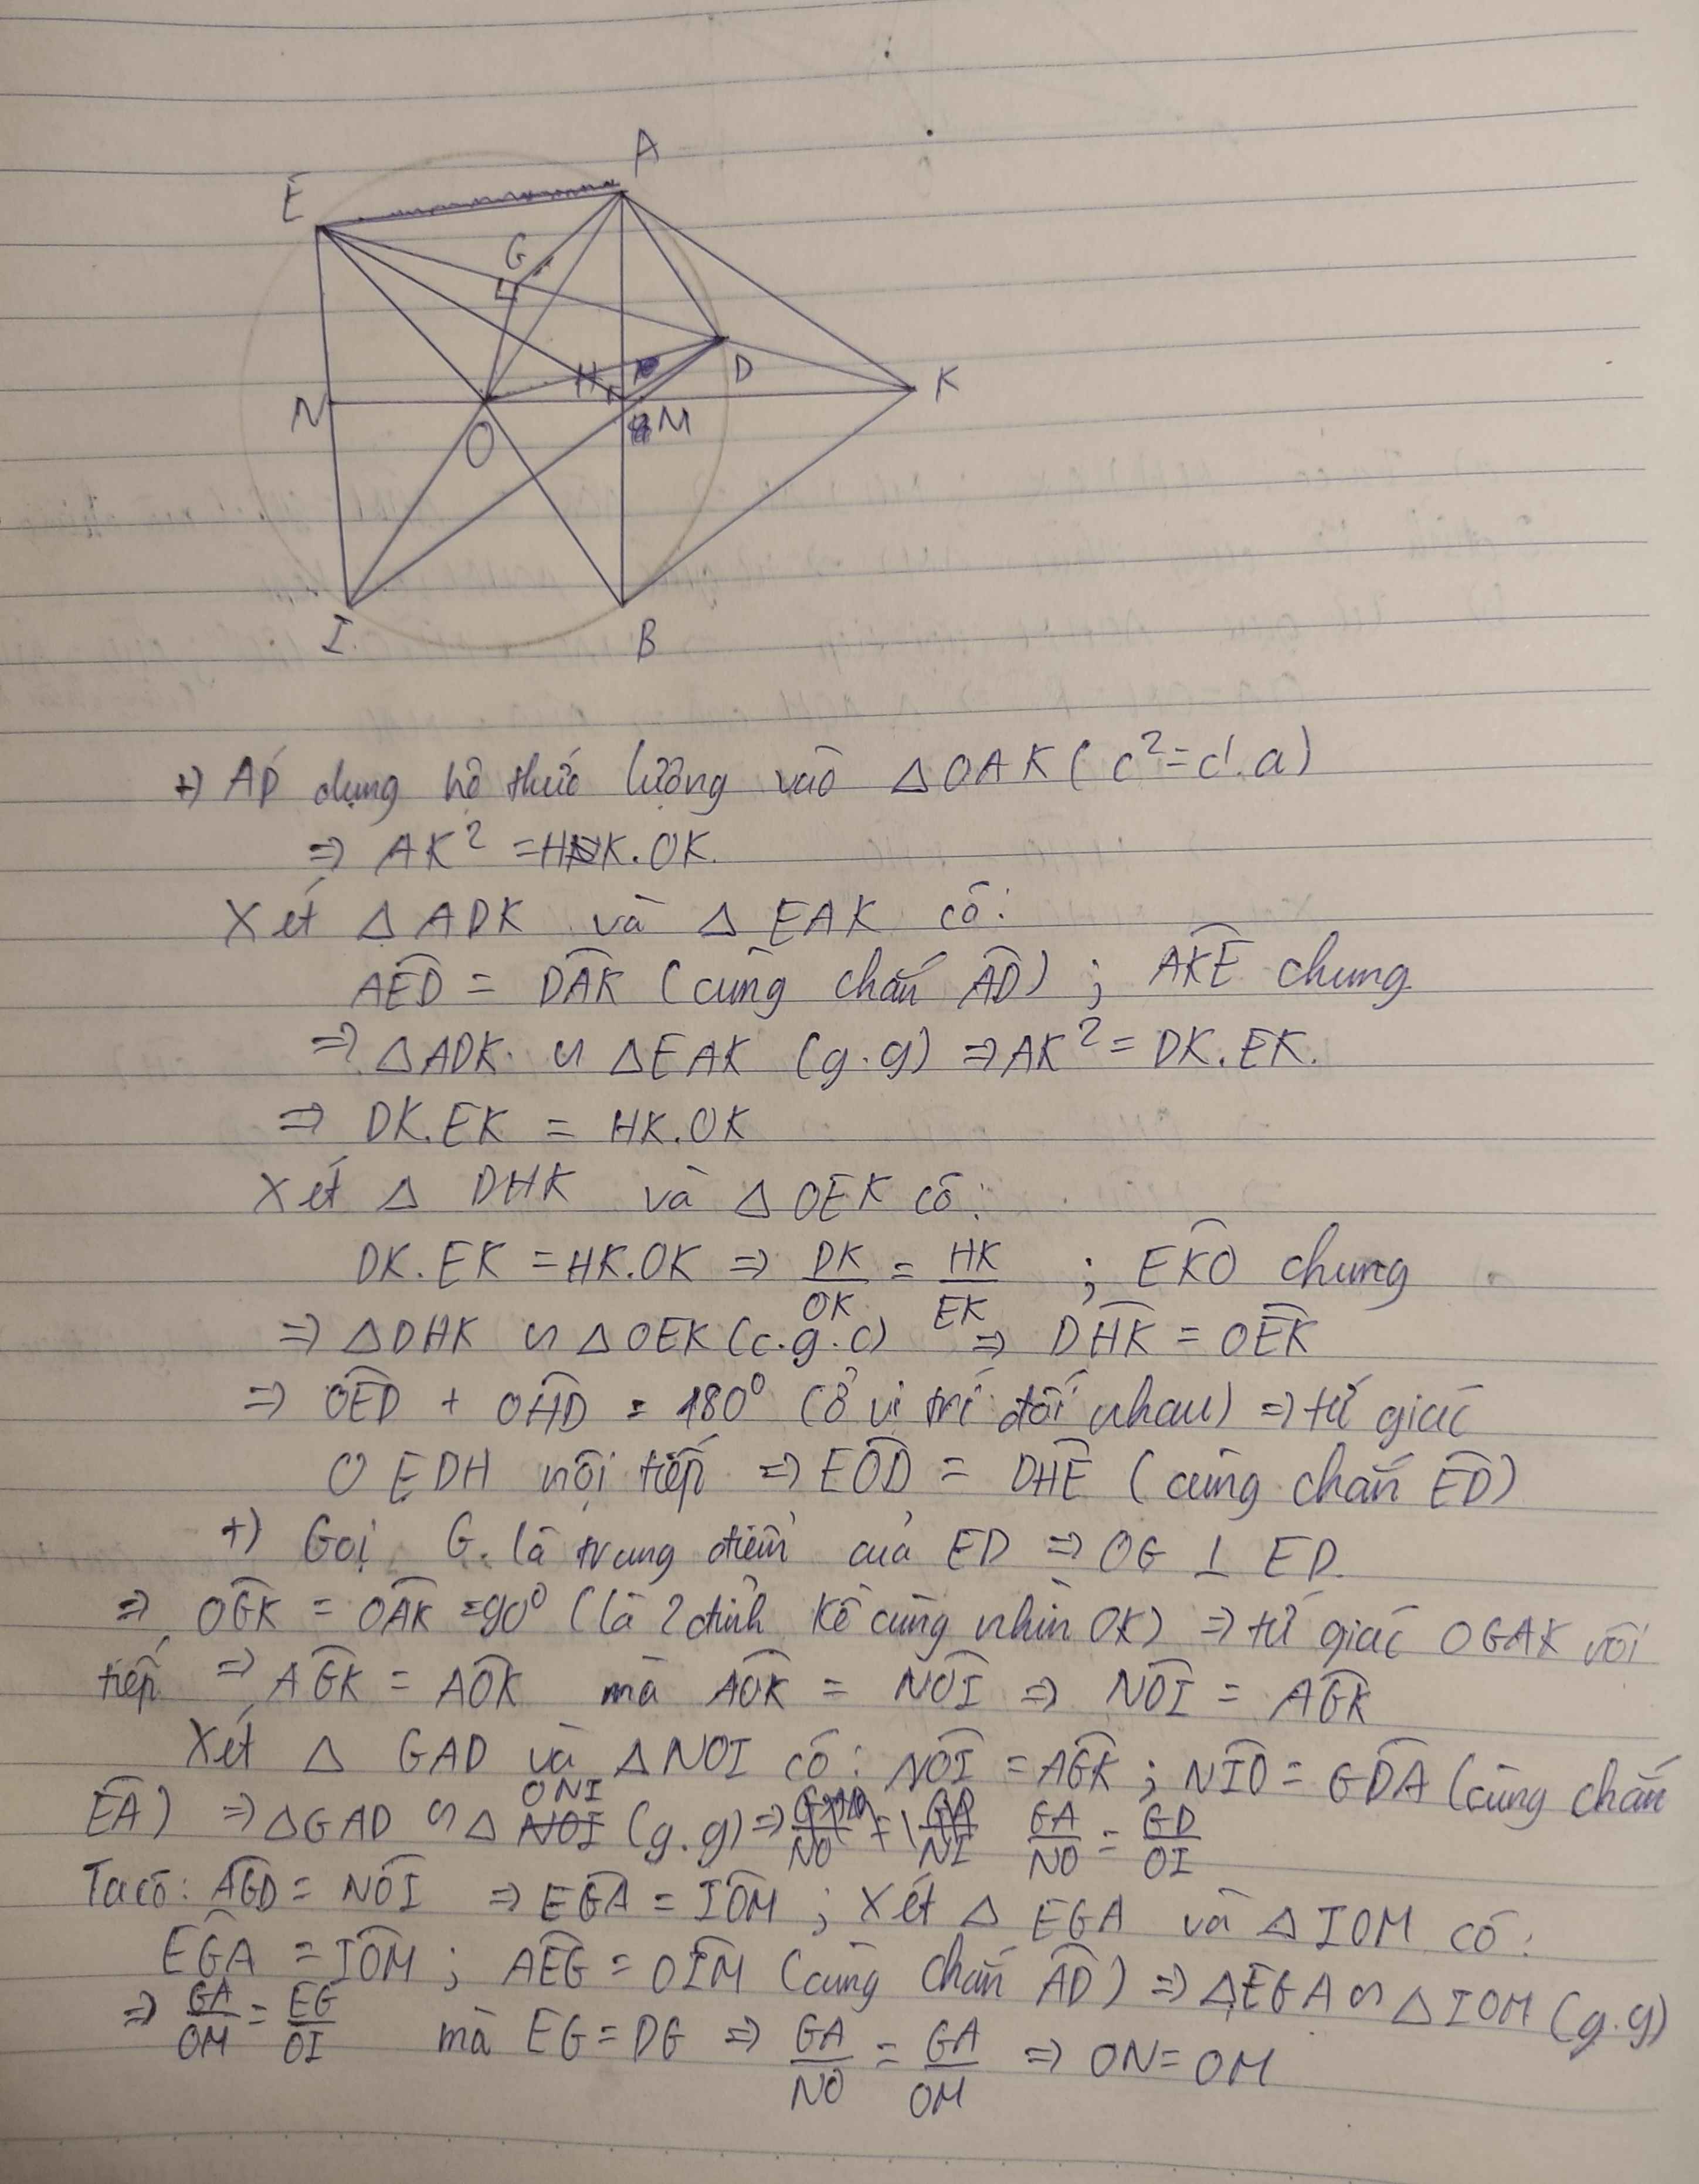 A
E
G
H
D
K
N
M
O
I
B
+) Áp dụng hệ thức lượng vào △OAK (c² = c'.a)
⇒ AK² = HK.OK.
Xét △ ADK và △ EAK có:
AÊD = DÂK (cùng chắn AD⌢) ; AK̂E chung
⇒ △ADK ∽ △EAK (g.g) ⇒ AK² = DK.EK.
⇒ DK.EK = HK.OK
Xét △ DHK và △ OEK có:
DK.EK = HK.OK ⇒ DK/OK = HK/EK ; EK̂O chung
⇒ △DHK ∽ △OEK (c.g.c) ⇒ DĤK = OÊK
⇒ OÊD + OĤD = 180° (ở vị trí đối nhau) ⇒ tứ giác
OEDH nội tiếp ⇒ EÔD = DĤE (cùng chắn ED⌢)
+) Gọi G là trung điểm của ED ⇒ OG ⊥ ED.
⇒ OĜK = OÂK = 90° (là 2 đỉnh kề cùng nhìn OK) ⇒ tứ giác OGAK nội
tiếp ⇒ AĜK = AÔK mà AÔK = NÔI ⇒ NÔI = AĜK
Xét △ GAD và △ NOI có: NÔI = AĜK ; NÎO = GD̂A (cùng chắn
EA⌢) ⇒ △GAD ∽ △ ONI (g.g) ⇒ GA/NO = GD/OI
Ta có: AĜD = NÔI ⇒ EĜA = IÔM ; Xét △ EGA và △ IOM có:
EĜA = IÔM ; AÊG = OÎM (cùng chắn AD⌢) ⇒ △EGA ∽ △IOM (g.g)
⇒ GA/OM = EG/OI mà EG = DG ⇒ GA/NO = GA/OM ⇒ ON = OM